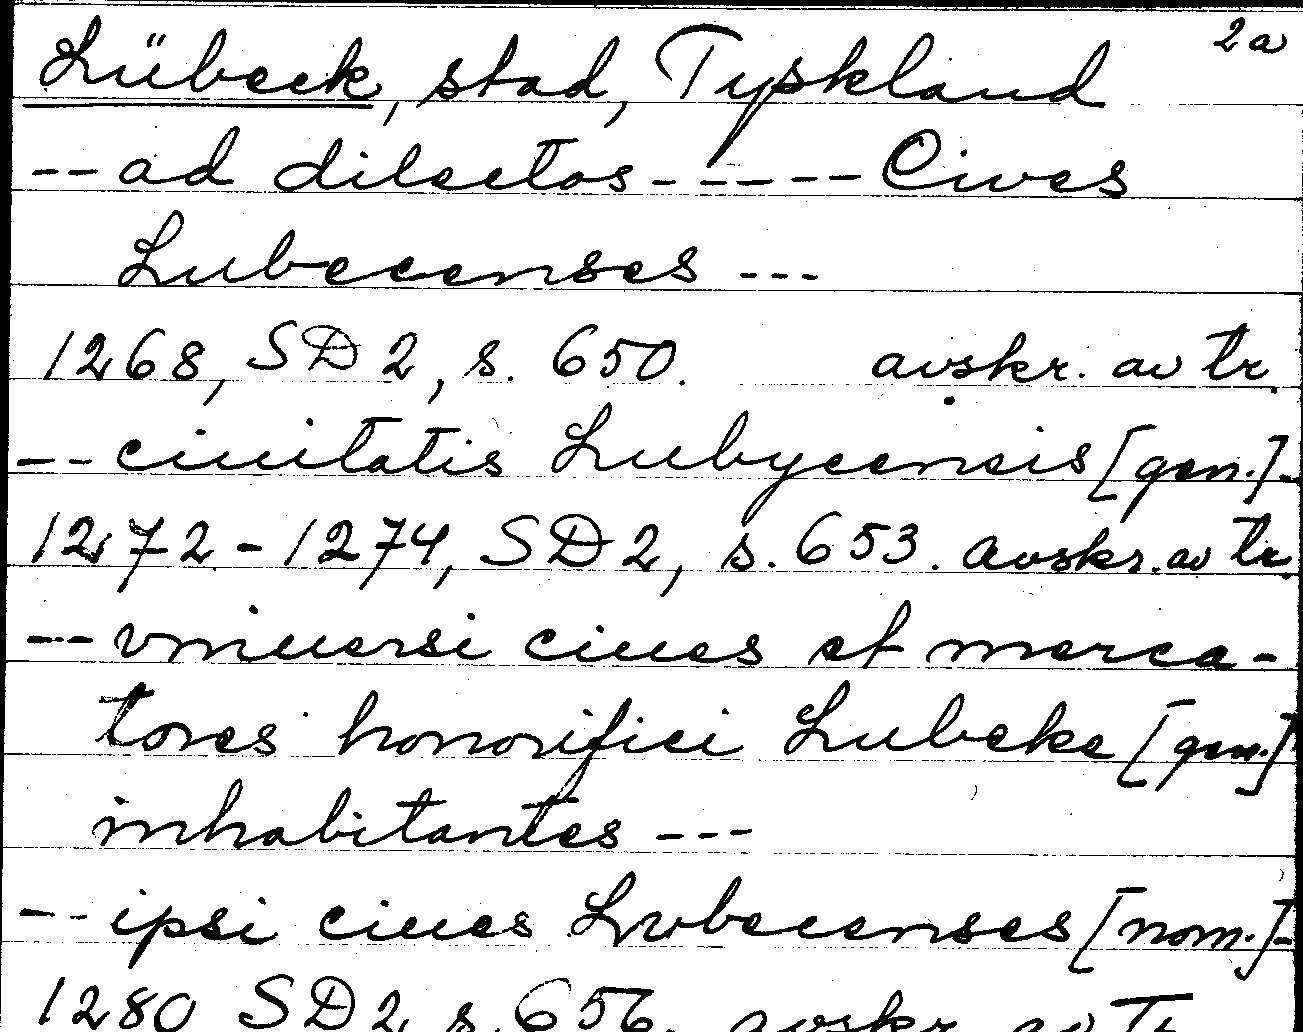 2a
Lübeck, stad, Tyskland
-- ad dilectos ----- Cives
Lubecenses ---
1268, SD 2, s. 650. avskr. av tr.
-- ciuitatis Lubycensis [gen.] -
1272 - 1274, SD 2, s. 653. avskr. av tr.
--- vniuersi ciues et merca-
tores honorifici Lubeke [gen.]
inhabitantes ---
--- ipsi ciues Lvbecenses [nom.] -
1280 SD 2 s. 656. avskr. av Tr